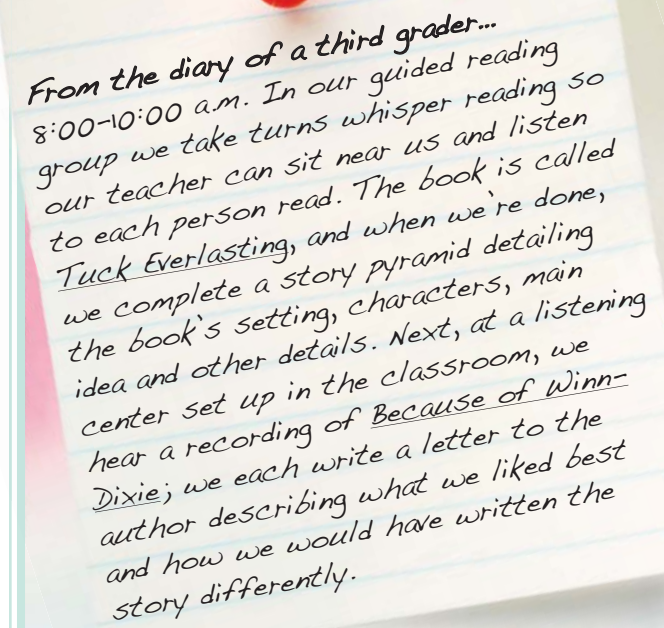 From the diary of a third grader...
8:00-10:00 a.m. In our guided reading
group we take turns whisper reading so
our teacher can sit near us and listen
to each person read. The book is called
Tuck Everlasting, and when we're done,
we complete a story pyramid detailing
the book's setting, characters, main
idea and other details. Next, at a listening
center set up in the classroom, we
hear a recording of Because of Winn-
Dixie; we each write a letter to the
author describing what we liked best
and how we would have written the
story differently.